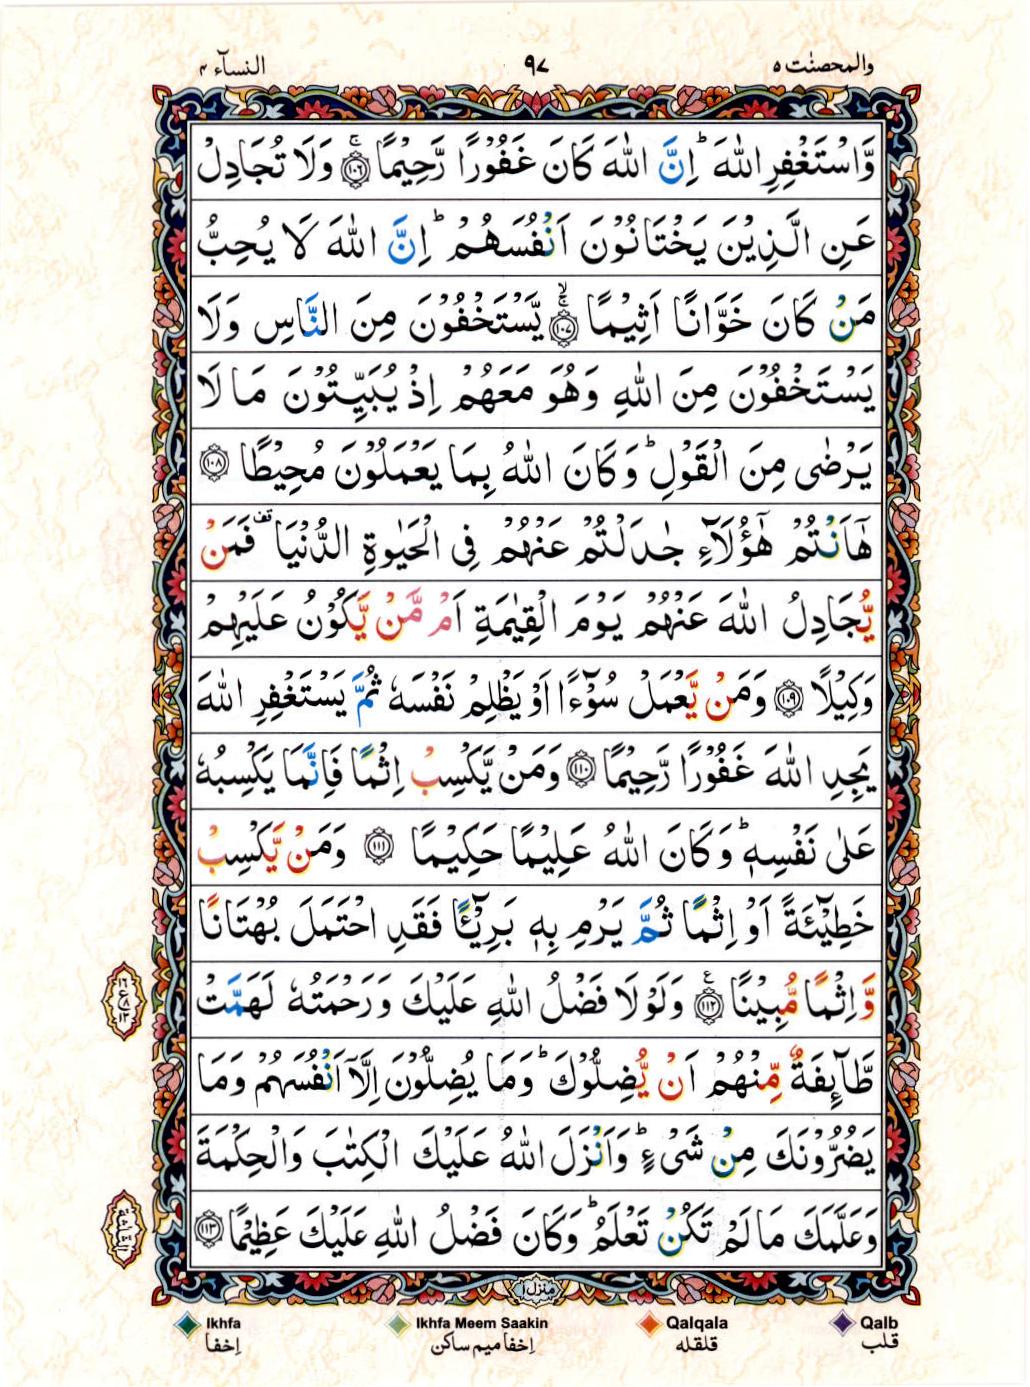 والمحصنٰت ٥
٩٧
النسآء ٤
وَّاسْتَغْفِرِ اللّٰهَ ؕ اِنَّ اللّٰهَ كَانَ غَفُوْرًا رَّحِيْمًا ۚ‏﴿۱۰۶﴾ وَلَا تُجَادِلْ
عَنِ الَّذِيْنَ يَخْتَانُوْنَ اَنْفُسَهُمْ ؕ اِنَّ اللّٰهَ لَا يُحِبُّ
مَنْ كَانَ خَوَّانًا اَثِيْمًا ۙۚ‏﴿۱۰۷﴾ يَّسْتَخْفُوْنَ مِنَ النَّاسِ وَلَا
يَسْتَخْفُوْنَ مِنَ اللّٰهِ وَهُوَ مَعَهُمْ اِذْ يُبَيِّتُوْنَ مَا لَا
يَرْضٰى مِنَ الْقَوْلِ ؕ وَكَانَ اللّٰهُ بِمَا يَعْمَلُوْنَ مُحِيْطًا ﴿۱۰۸﴾
هٰۤاَنْتُمْ هٰٓؤُلَآءِ جٰدَلْتُمْ عَنْهُمْ فِى الْحَيٰوةِ الدُّنْيَا قف فَمَنْ
يُّجَادِلُ اللّٰهَ عَنْهُمْ يَوْمَ الْقِيٰمَةِ اَمْ مَّنْ يَّكُوْنُ عَلَيْهِمْ
وَكِيْلًا ﴿۱۰۹﴾ وَمَنْ يَّعْمَلْ سُوْٓءًا اَوْ يَظْلِمْ نَفْسَهٗ ثُمَّ يَسْتَغْفِرِ اللّٰهَ
يَجِدِ اللّٰهَ غَفُوْرًا رَّحِيْمًا ﴿۱۱۰﴾ وَمَنْ يَّكْسِبْ اِثْمًا فَاِنَّمَا يَكْسِبُهٗ
عَلٰى نَفْسِهٖ ؕ وَكَانَ اللّٰهُ عَلِيْمًا حَكِيْمًا ﴿۱۱۱﴾ وَمَنْ يَّكْسِبْ
خَطِيْٓئَةً اَوْ اِثْمًا ثُمَّ يَرْمِ بِهٖ بَرِيْٓـًٔا فَقَدِ احْتَمَلَ بُهْتَانًا
وَّاِثْمًا مُّبِيْنًا ࣖ‏﴿۱۱۲﴾ وَلَوْلَا فَضْلُ اللّٰهِ عَلَيْكَ وَرَحْمَتُهٗ لَهَمَّتْ
طَّآئِفَةٌ مِّنْهُمْ اَنْ يُّضِلُّوْكَ ؕ وَمَا يُضِلُّوْنَ اِلَّاۤ اَنْفُسَهُمْ وَمَا
يَضُرُّوْنَكَ مِنْ شَىْءٍ ؕ وَاَنْزَلَ اللّٰهُ عَلَيْكَ الْكِتٰبَ وَالْحِكْمَةَ
وَعَلَّمَكَ مَا لَمْ تَكُنْ تَعْلَمُ ؕ وَكَانَ فَضْلُ اللّٰهِ عَلَيْكَ عَظِيْمًا ﴿۱۱۳﴾
منزل ۱
Ikhfa
Ikhfa Meem Saakin
Qalqala
Qalb
إخفا
إخفا ميم ساكن
قلقله
قلب